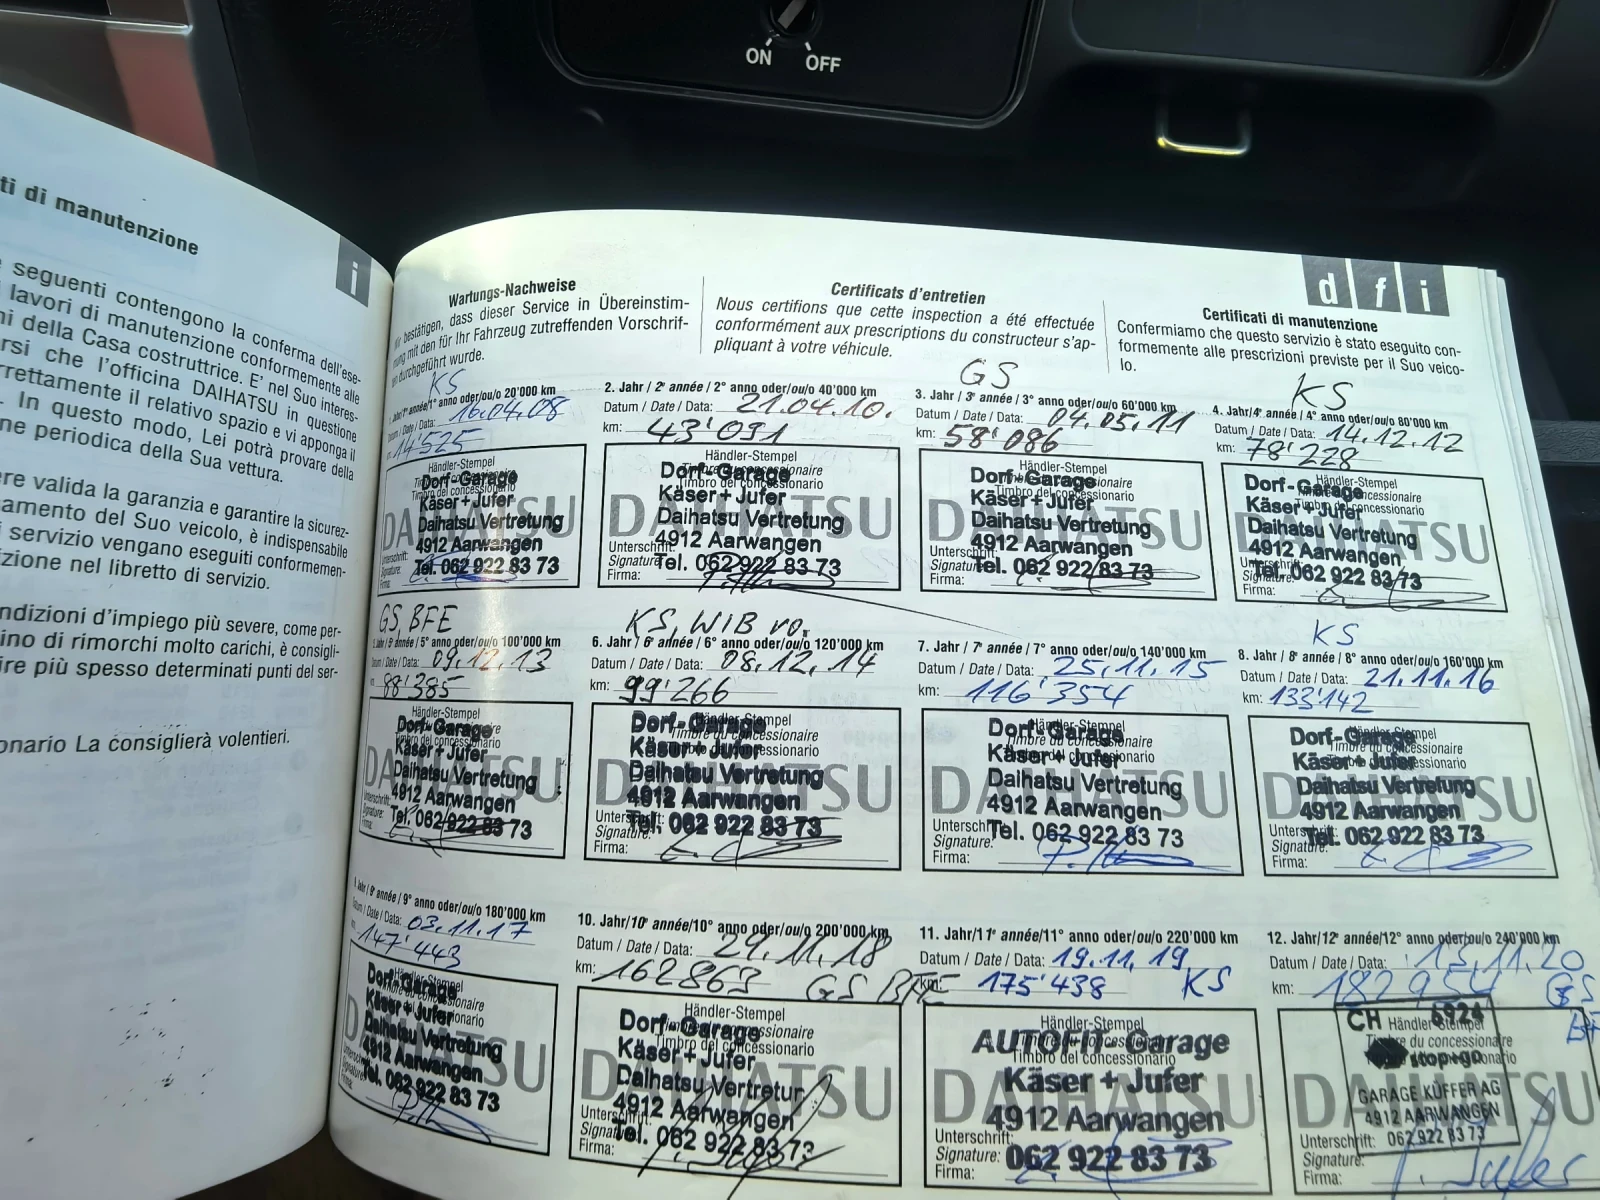 ON OFF
ti di manutenzione
i
e seguenti contengono la conferma dell'ese-
lavori di manutenzione conformemente alle
ni della Casa costruttrice. E' nel Suo interes-
rsi che l'officina DAIHATSU in questione
rrettamente il relativo spazio e vi apponga il
. In questo modo, Lei potrà provare della
ne periodica della Sua vettura.
ere valida la garanzia e garantire la sicurez-
amento del Suo veicolo, è indispensabile
i servizio vengano eseguiti conformemen-
izione nel libretto di servizio.
ndizioni d'impiego più severe, come per-
ino di rimorchi molto carichi, è consigli-
ire più spesso determinati punti del ser-
onario La consiglierà volentieri.
d f i
Wartungs-Nachweise
bestätigen, dass dieser Service in Übereinstim-
mung mit den für Ihr Fahrzeug zutreffenden Vorschrif-
durchgeführt wurde.
Certificats d'entretien
Nous certifions que cette inspection a été effectuée
conformément aux prescriptions du constructeur s'ap-
pliquant à votre véhicule.
Certificati di manutenzione
Confermiamo che questo servizio è stato eseguito con-
formemente alle prescrizioni previste per il Suo veico-
lo.
KS
1. Jahr/1e année/1° anno oder/ou/o 20'000 km
Datum / Date / Data: 16.04.08
14'525
Händler-Stempel
Timbro del concessionario
DAIHATSU
Dorf-Garage
Käser + Jufer
Daihatsu Vertretung
4912 Aarwangen
Tel. 062 922 83 73
Unterschrift:
Signature:
Firma:
2. Jahr / 2e année / 2° anno oder/ou/o 40'000 km
Datum / Date / Data: 21.04.10.
km: 43'091
Händler-Stempel
Timbre du concessionnaire
Timbro del concessionario
DAIHATSU
Dorf-Garage
Käser + Jufer
Daihatsu Vertretung
4912 Aarwangen
Tel. 062 922 83 73
Unterschrift:
Signature:
Firma:
GS
3. Jahr / 3e année / 3° anno oder/ou/o 60'000 km
Datum / Date / Data: 04.05.11
km: 58'086
Händler-Stempel
Timbre du concessionnaire
Timbro del concessionario
DAIHATSU
Dorf-Garage
Käser + Jufer
Daihatsu Vertretung
4912 Aarwangen
Tel. 062 922 83 73
Unterschrift:
Signature:
Firma:
KS
4. Jahr/4e année / 4° anno oder/ou/o 80'000 km
Datum / Date / Data: 14.12.12
km: 78'228
Händler-Stempel
Timbre du concessionnaire
Timbro del concessionario
DAIHATSU
Dorf-Garage
Käser + Jufer
Daihatsu Vertretung
4912 Aarwangen
Tel. 062 922 83 73
Unterschrift:
Signature:
Firma:
GS, BFE
5. Jahr / 5e année / 5° anno oder/ou/o 100'000 km
Datum / Date / Data: 09.12.13
88'385
Händler-Stempel
Timbro del concessionario
DAIHATSU
Dorf-Garage
Käser + Jufer
Daihatsu Vertretung
4912 Aarwangen
Tel. 062 922 83 73
Unterschrift:
Signature:
Firma:
KS, WIB vo.
6. Jahr / 6e année / 6° anno oder/ou/o 120'000 km
Datum / Date / Data: 08.12.14
km: 99'266
Händler-Stempel
Timbre du concessionnaire
Timbro del concessionario
DAIHATSU
Dorf-Garage
Käser + Jufer
Daihatsu Vertretung
4912 Aarwangen
Tel. 062 922 83 73
Unterschrift:
Signature:
Firma:
7. Jahr / 7e année / 7° anno oder/ou/o 140'000 km
Datum / Date / Data: 25.11.15
km: 116'354
Händler-Stempel
Timbre du concessionnaire
Timbro del concessionario
DAIHATSU
Dorf-Garage
Käser + Jufer
Daihatsu Vertretung
4912 Aarwangen
Tel. 062 922 83 73
Unterschrift:
Signature:
Firma:
KS
8. Jahr / 8e année / 8° anno oder/ou/o 160'000 km
Datum / Date / Data: 21.11.16
km: 133'142
Händler-Stempel
Timbre du concessionnaire
Timbro del concessionario
DAIHATSU
Dorf-Garage
Käser + Jufer
Daihatsu Vertretung
4912 Aarwangen
Tel. 062 922 83 73
Unterschrift:
Signature:
Firma:
9. Jahr / 9e année / 9° anno oder/ou/o 180'000 km
Datum / Date / Data: 03.11.17
147'443
Händler-Stempel
DAIHATSU
Dorf-Garage
Käser + Jufer
Daihatsu Vertretung
4912 Aarwangen
Tel. 062 922 83 73
Unterschrift:
Signature:
Firma:
10. Jahr/10e année/10° anno oder/ou/o 200'000 km
Datum / Date / Data: 29.11.18
km: 162863 GS BFE
Händler-Stempel
Timbre du concessionnaire
Timbro del concessionario
DAIHATSU
Dorf-Garage
Käser + Jufer
Daihatsu Vertretung
4912 Aarwangen
Tel. 062 922 83 73
Unterschrift:
Signature:
Firma:
11. Jahr/11e année/11° anno oder/ou/o 220'000 km
Datum / Date / Data: 19.11.19
km: 175'438 KS
Händler-Stempel
Timbre du concessionnaire
Timbro del concessionario
DAIHATSU
AUTOFIT Garage
Käser + Jufer
4912 Aarwangen
062 922 83 73
Unterschrift:
Signature:
Firma:
12. Jahr/12e année/12° anno oder/ou/o 240'000 km
Datum / Date / Data: 13.11.20
km: 182954 GS
Händler-Stempel
Timbre du concessionnaire
DAIHATSU
CH 6924
stop+go
GARAGE KÜFFER AG
4912 AARWANGEN
062 922 83 73
Unterschrift:
Signature:
Firma: